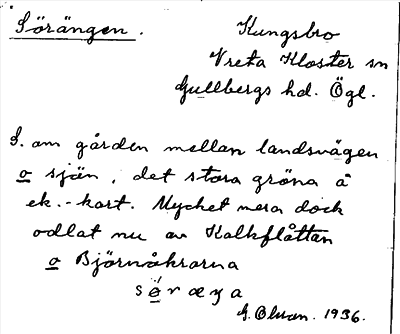 Sörängen.
Kungsbro
Vreta Kloster sn
Gullbergs hd. Ögl.
S. om gården mellan landsvägen
o sjön, det stora gröna å
ek.-kart. Mycket mera dock
odlat nu av Kalkflåttan
o Björnåkrarna
sö́ræŋa
G. Olson. 1936.